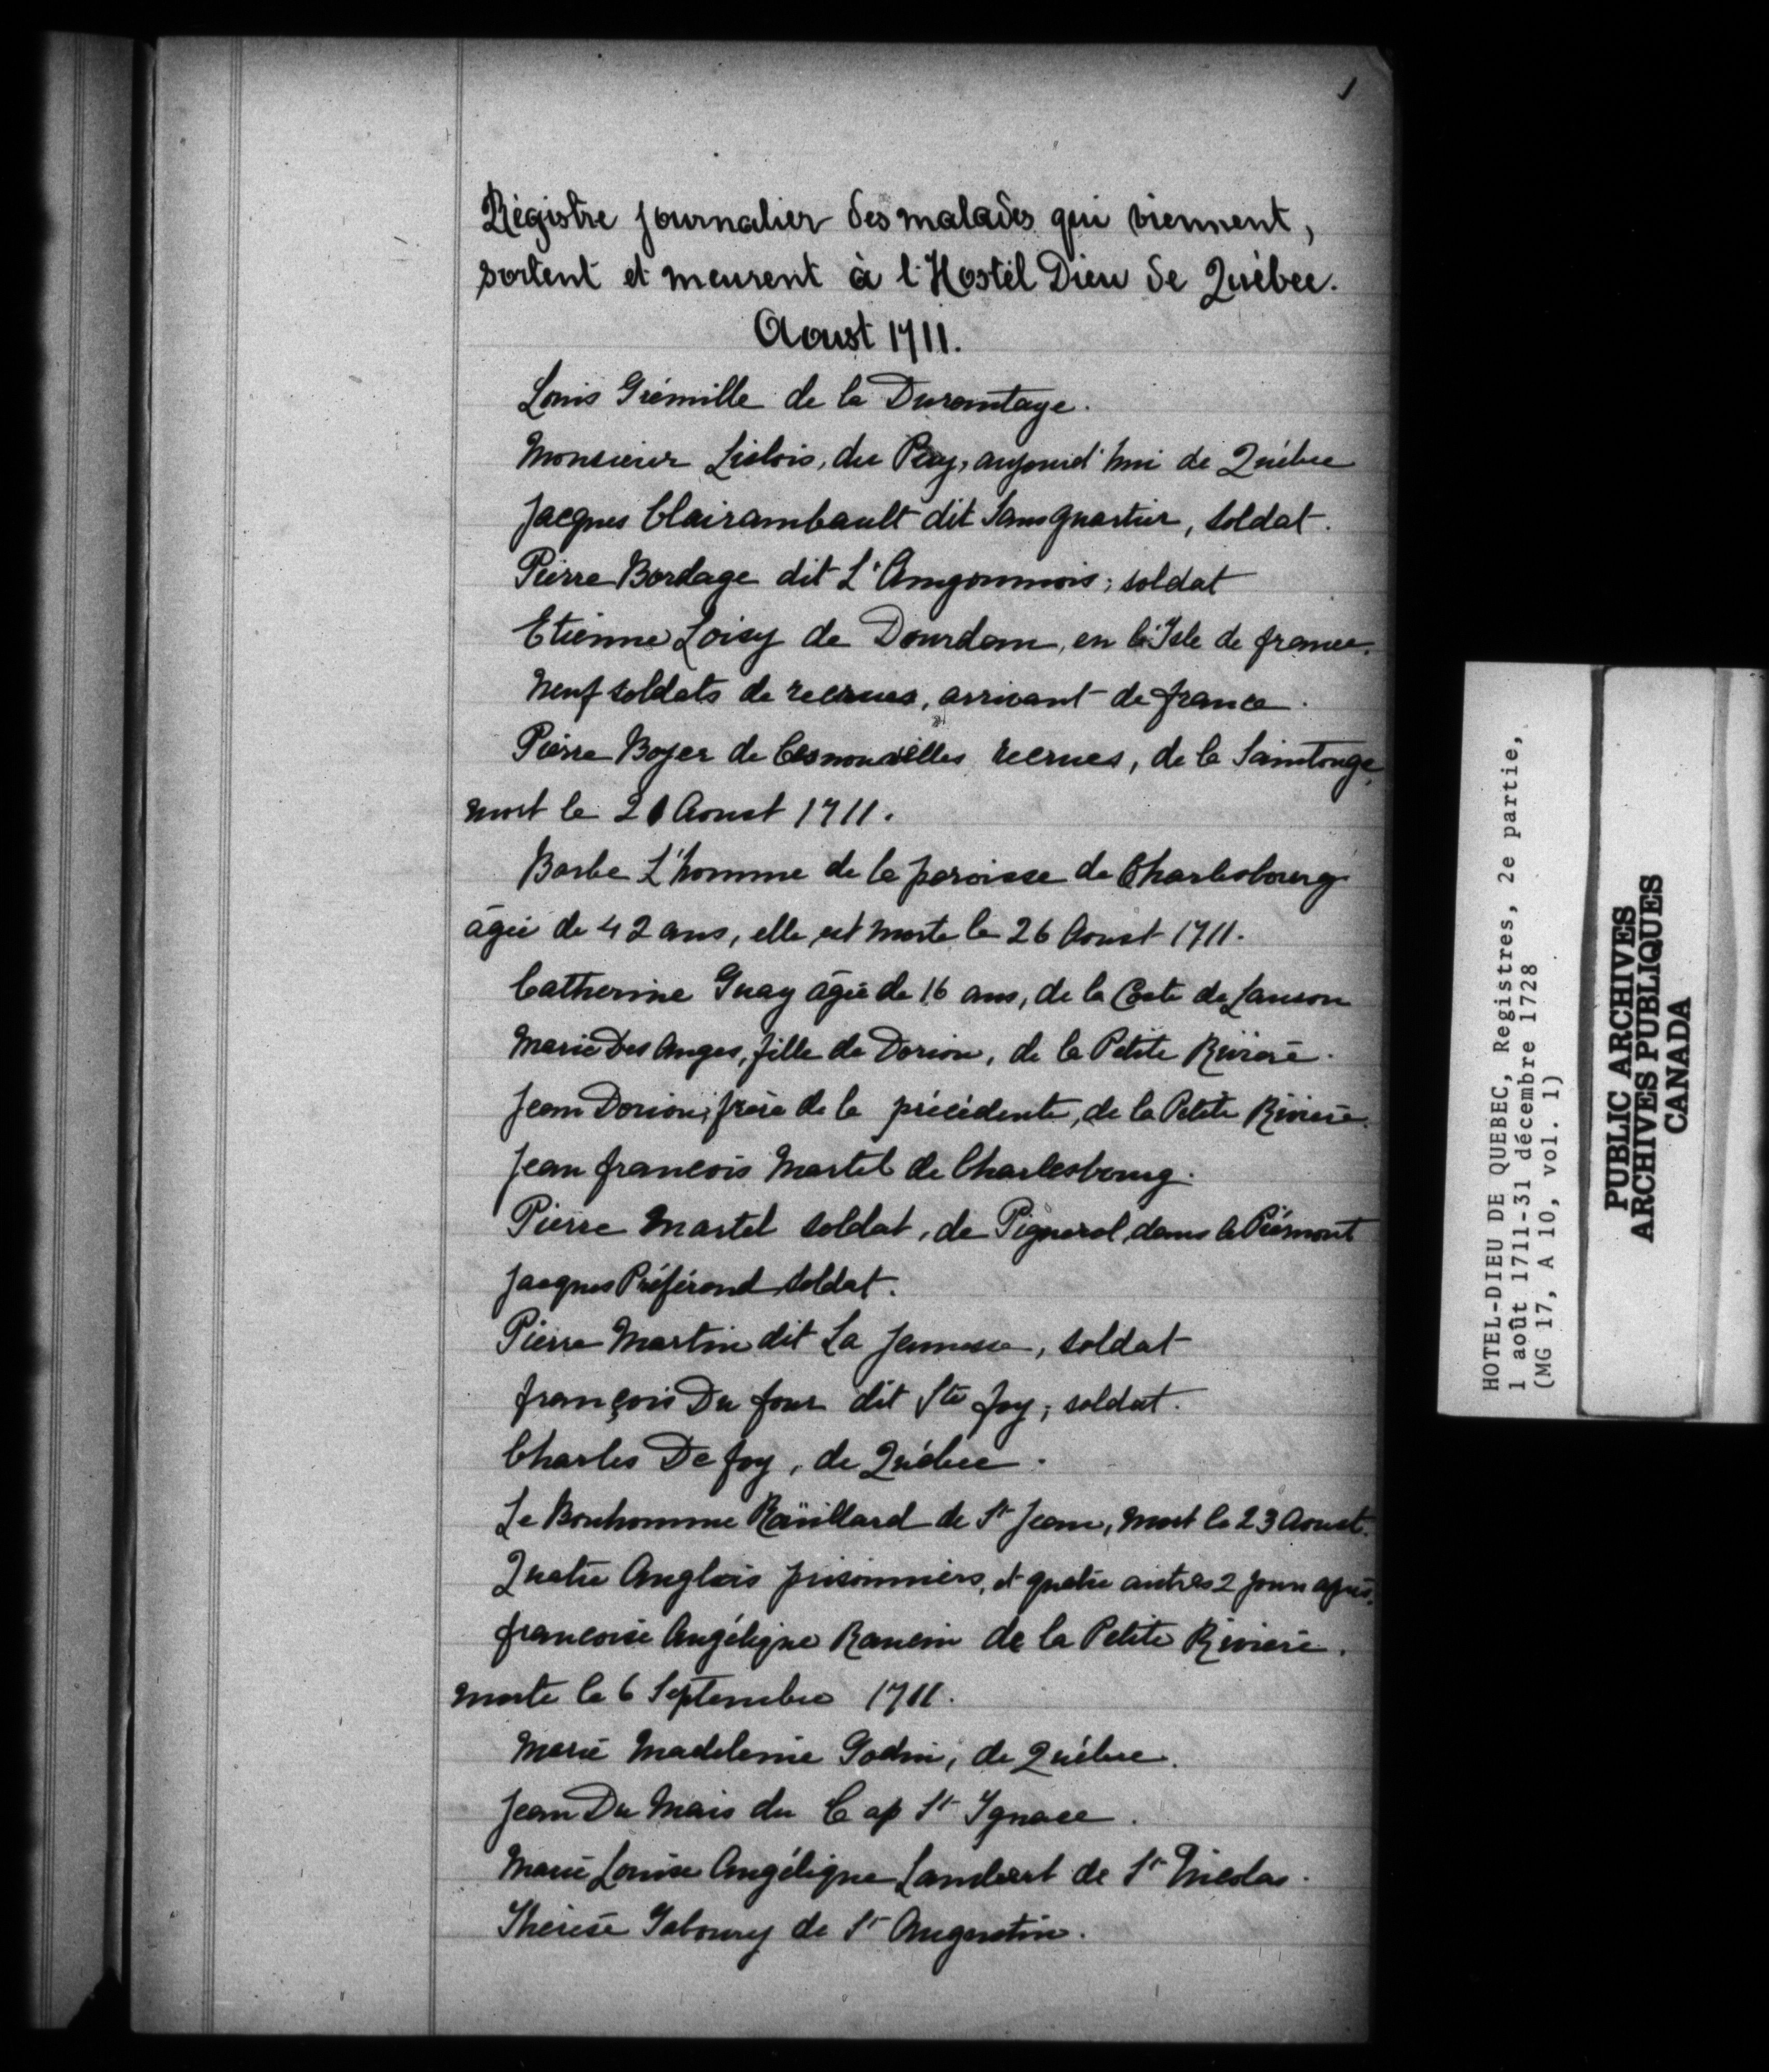 1
Règistre journalier des malades qui viennent,
sortent et meurent à l'Hostel Dieu de Québec.
Aoust 1711.
Louis Grémille de la Durantaye.
Monsieur Lislois, du Puy, aujourd'hui de Québec
Jacques Clairambault dit Sansquartier, soldat.
Pierre Bordage dit L'Angoumois, soldat
Etienne Loisy de Dourdan, en l'Isle de france.
Neuf soldats de recrues, arrivant de france.
Pierre Boyer de Ces nouvelles recrues, de la Saintonge,
mort le 21 Aoust 1711.
Barbe L'homme de la paroisse de Charlesbourg
âgée de 42 ans, elle est morte le 26 Aoust 1711.
Catherine Guay âgée de 16 ans, de la Coste de Lauson
Marie Des Anges, fille de Dorion, de la Petite Rivière.
Jean Dorion, frère de la précédente, de la Petite Rivière.
Jean francois Martel de Charlesbourg.
Pierre Martel soldat, de Pignerol, dans le Piémont
Jacques Préférand soldat.
Pierre Martin dit La Jeunesse, soldat
françois Du four dit Ste foy, soldat.
Charles De foy, de Québec.
Le Bonhomme Roüillard de St Jean, mort le 23 Aoust.
Quatre Anglois prisonniers, et quatre autres 2 jours après.
francoise Angélique Rancin de la Petite Rivière.
morte le 6 Septembre 1711.
Marie Madeleine Godin, de Québec.
Jean Du Mais du Cap St Ignace.
Marie Louise Angélique Lambert de St Nicolas.
Thérèse Gaboury de St Augustin.
HOTEL-DIEU DE QUEBEC, Registres, 2e partie,
1 août 1711-31 décembre 1728
(MG 17, A 10, vol. 1)
PUBLIC ARCHIVES
ARCHIVES PUBLIQUES
CANADA